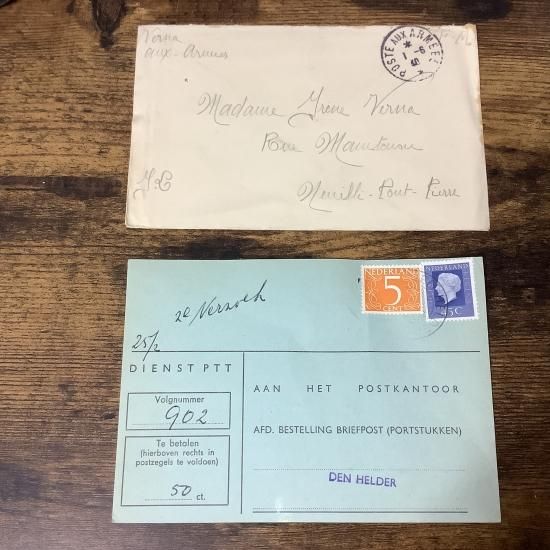 Verna
aux-Armees
POSTE AUX ARMEES
* 6
1
Madame Yrene Verna
Rue
F.M
Neuillé-Pont-Pierre
2e Verzoek
NEDERLAND
5
CENT
NEDERLAND
45C
25/2
DIENST PTT
Volgnummer
902
Te betalen
(hierboven rechts in
postzegels te voldoen)
50 ct.
AAN HET POSTKANTOOR
AFD. BESTELLING BRIEFPOST (PORTSTUKKEN)
DEN HELDER